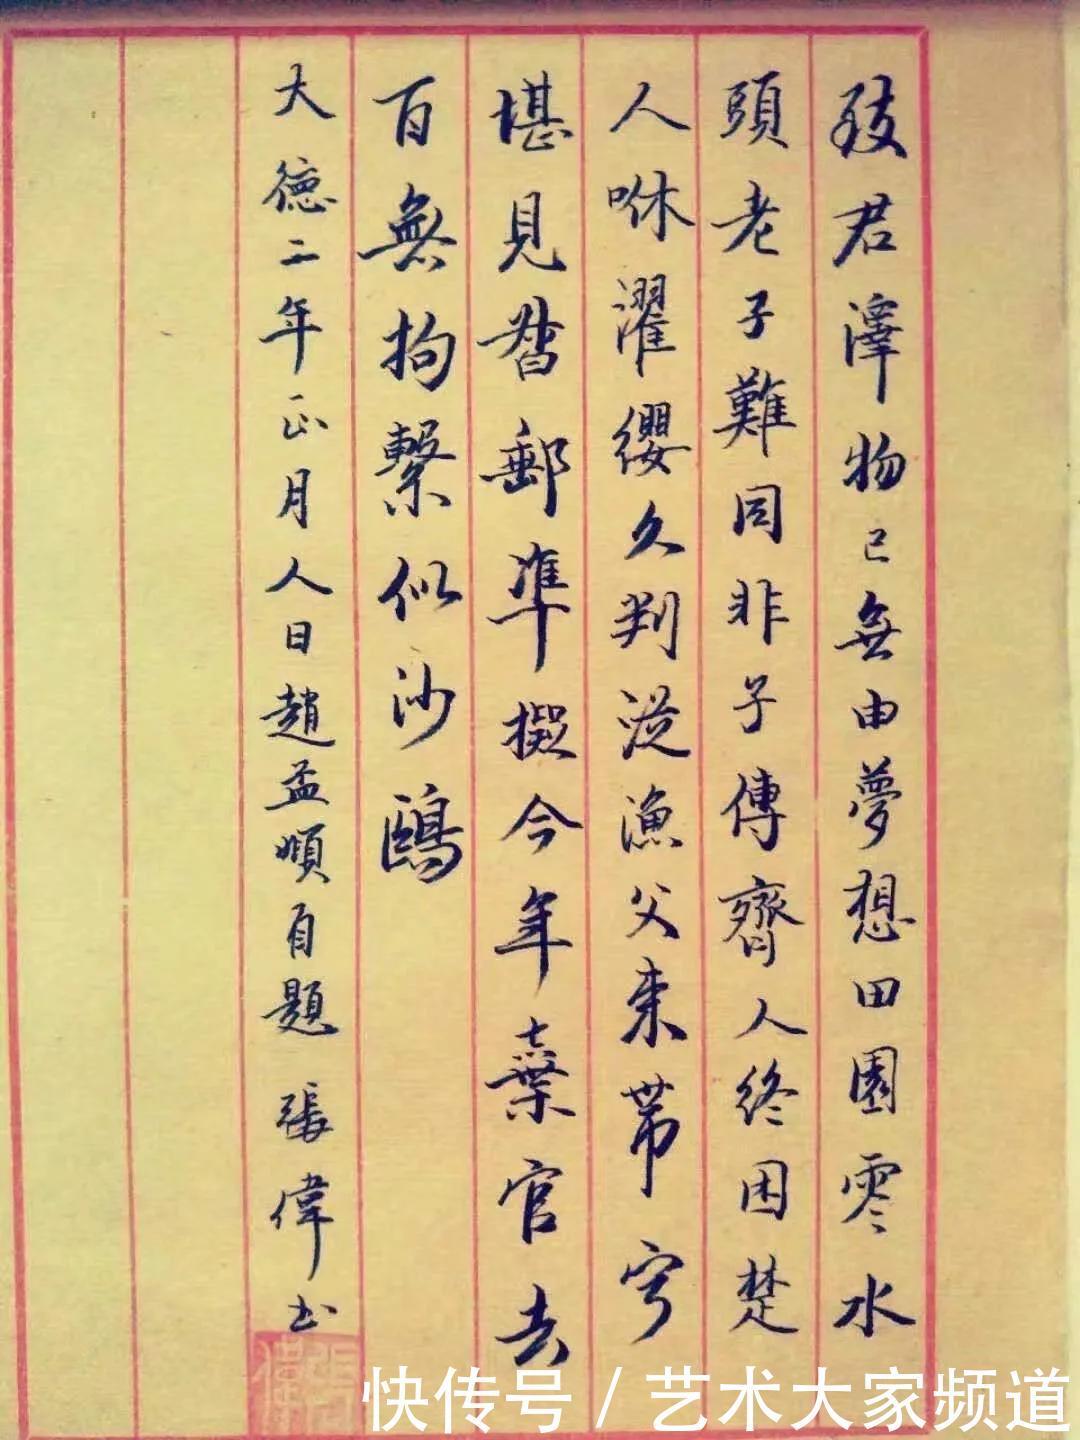 致君澤物已無由夢想田園零水
頭老子難同非子傳齊人終困楚
人咻濯纓久判從漁父束帶寧
堪見督郵準擬今年棄官去
百無拘繫似沙鷗
大德二年正月人日趙孟頫自題 張偉書
張偉
快传号/艺术大家频道